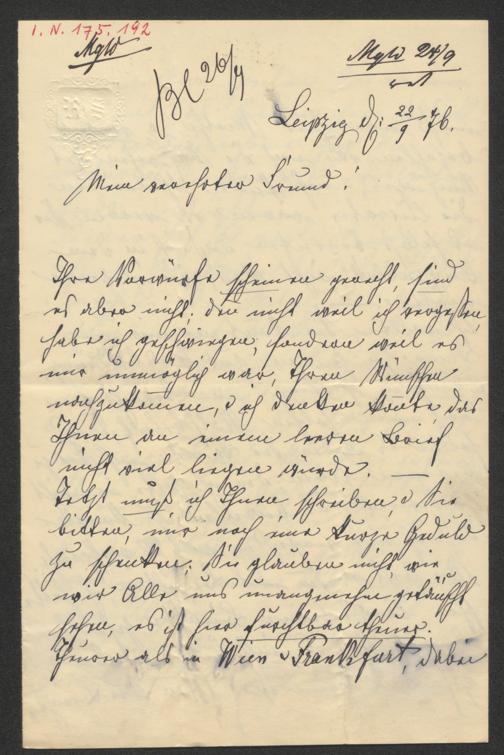 I. N. 175.192
Mgld
Bl 26/9
Mgld 24/9
Leipzig d. 22/9 76.
Mein verehrter Freund!
Ihre Vorwürfe scheinen gerecht, sind
es aber nicht; den nicht weil ich vergessen,
habe ich geschwiegen, sondern weil es
mir unmöglich war, Ihren Wünschen
nachzukommen, u ich denken konte, das
Ihnen an einem leeren Brief
nicht viel liegen würde. —
Jetzt muß ich Ihnen schreiben u Sie
bitten, mir noch eine kurze Geduld
zu schenken; Sie glauben nicht wie
wir Alle uns unangenehm getäuscht
sehen, es ist hier furchtbar theuer.
Theurer als in Wien u Frankfurt, dabei